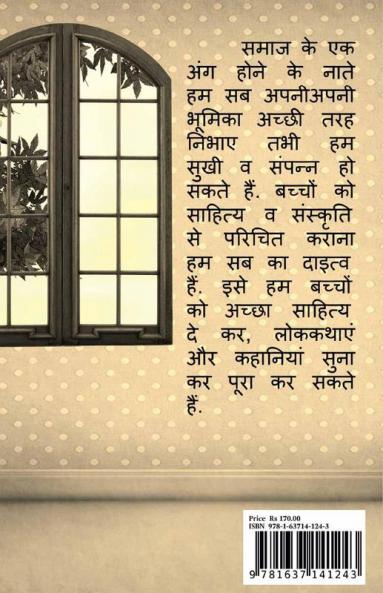 समाज के एक
अंग होने के नाते
हम सब अपनीअपनी
भूमिका अच्छी तरह
निभाए तभी हम
सुखी व संपन्न हो
सकते हैं. बच्चों को
साहित्य व संस्कृति
से परिचित कराना
हम सब का दाइत्व
हैं. इसे हम बच्चों
को अच्छा साहित्य
दे कर, लोककथाएं
और कहानियां सुना
कर पूरा कर सकते
हैं.
Price Rs 170.00
ISBN 978-1-63714-124-3
9 781637 141243